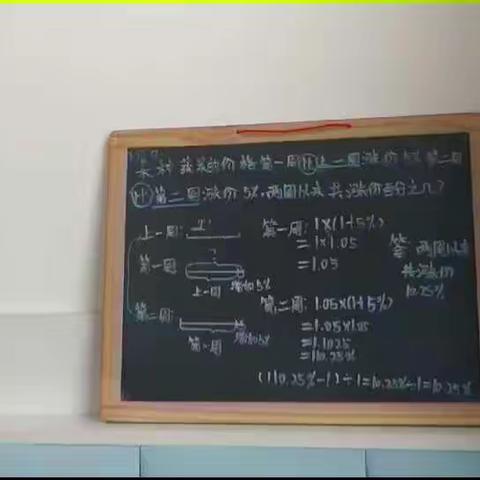 某种蔬菜的价格第一周比上一周涨价5%第二周
比第一周涨价5%,两周以来共涨价百分之几?
上一周:"1"
第一周:
?
上一周 增加5%
第二周:
第一周 增加5%
第一周: 1×(1+5%)
=1×1.05
=1.05
第二周: 1.05×(1+5%)
=1.05×1.05
=1.1025
=110.25%
(110.25%-1)÷1=10.25%÷1=10.25%
答: 两周以来
共涨价
10.25%